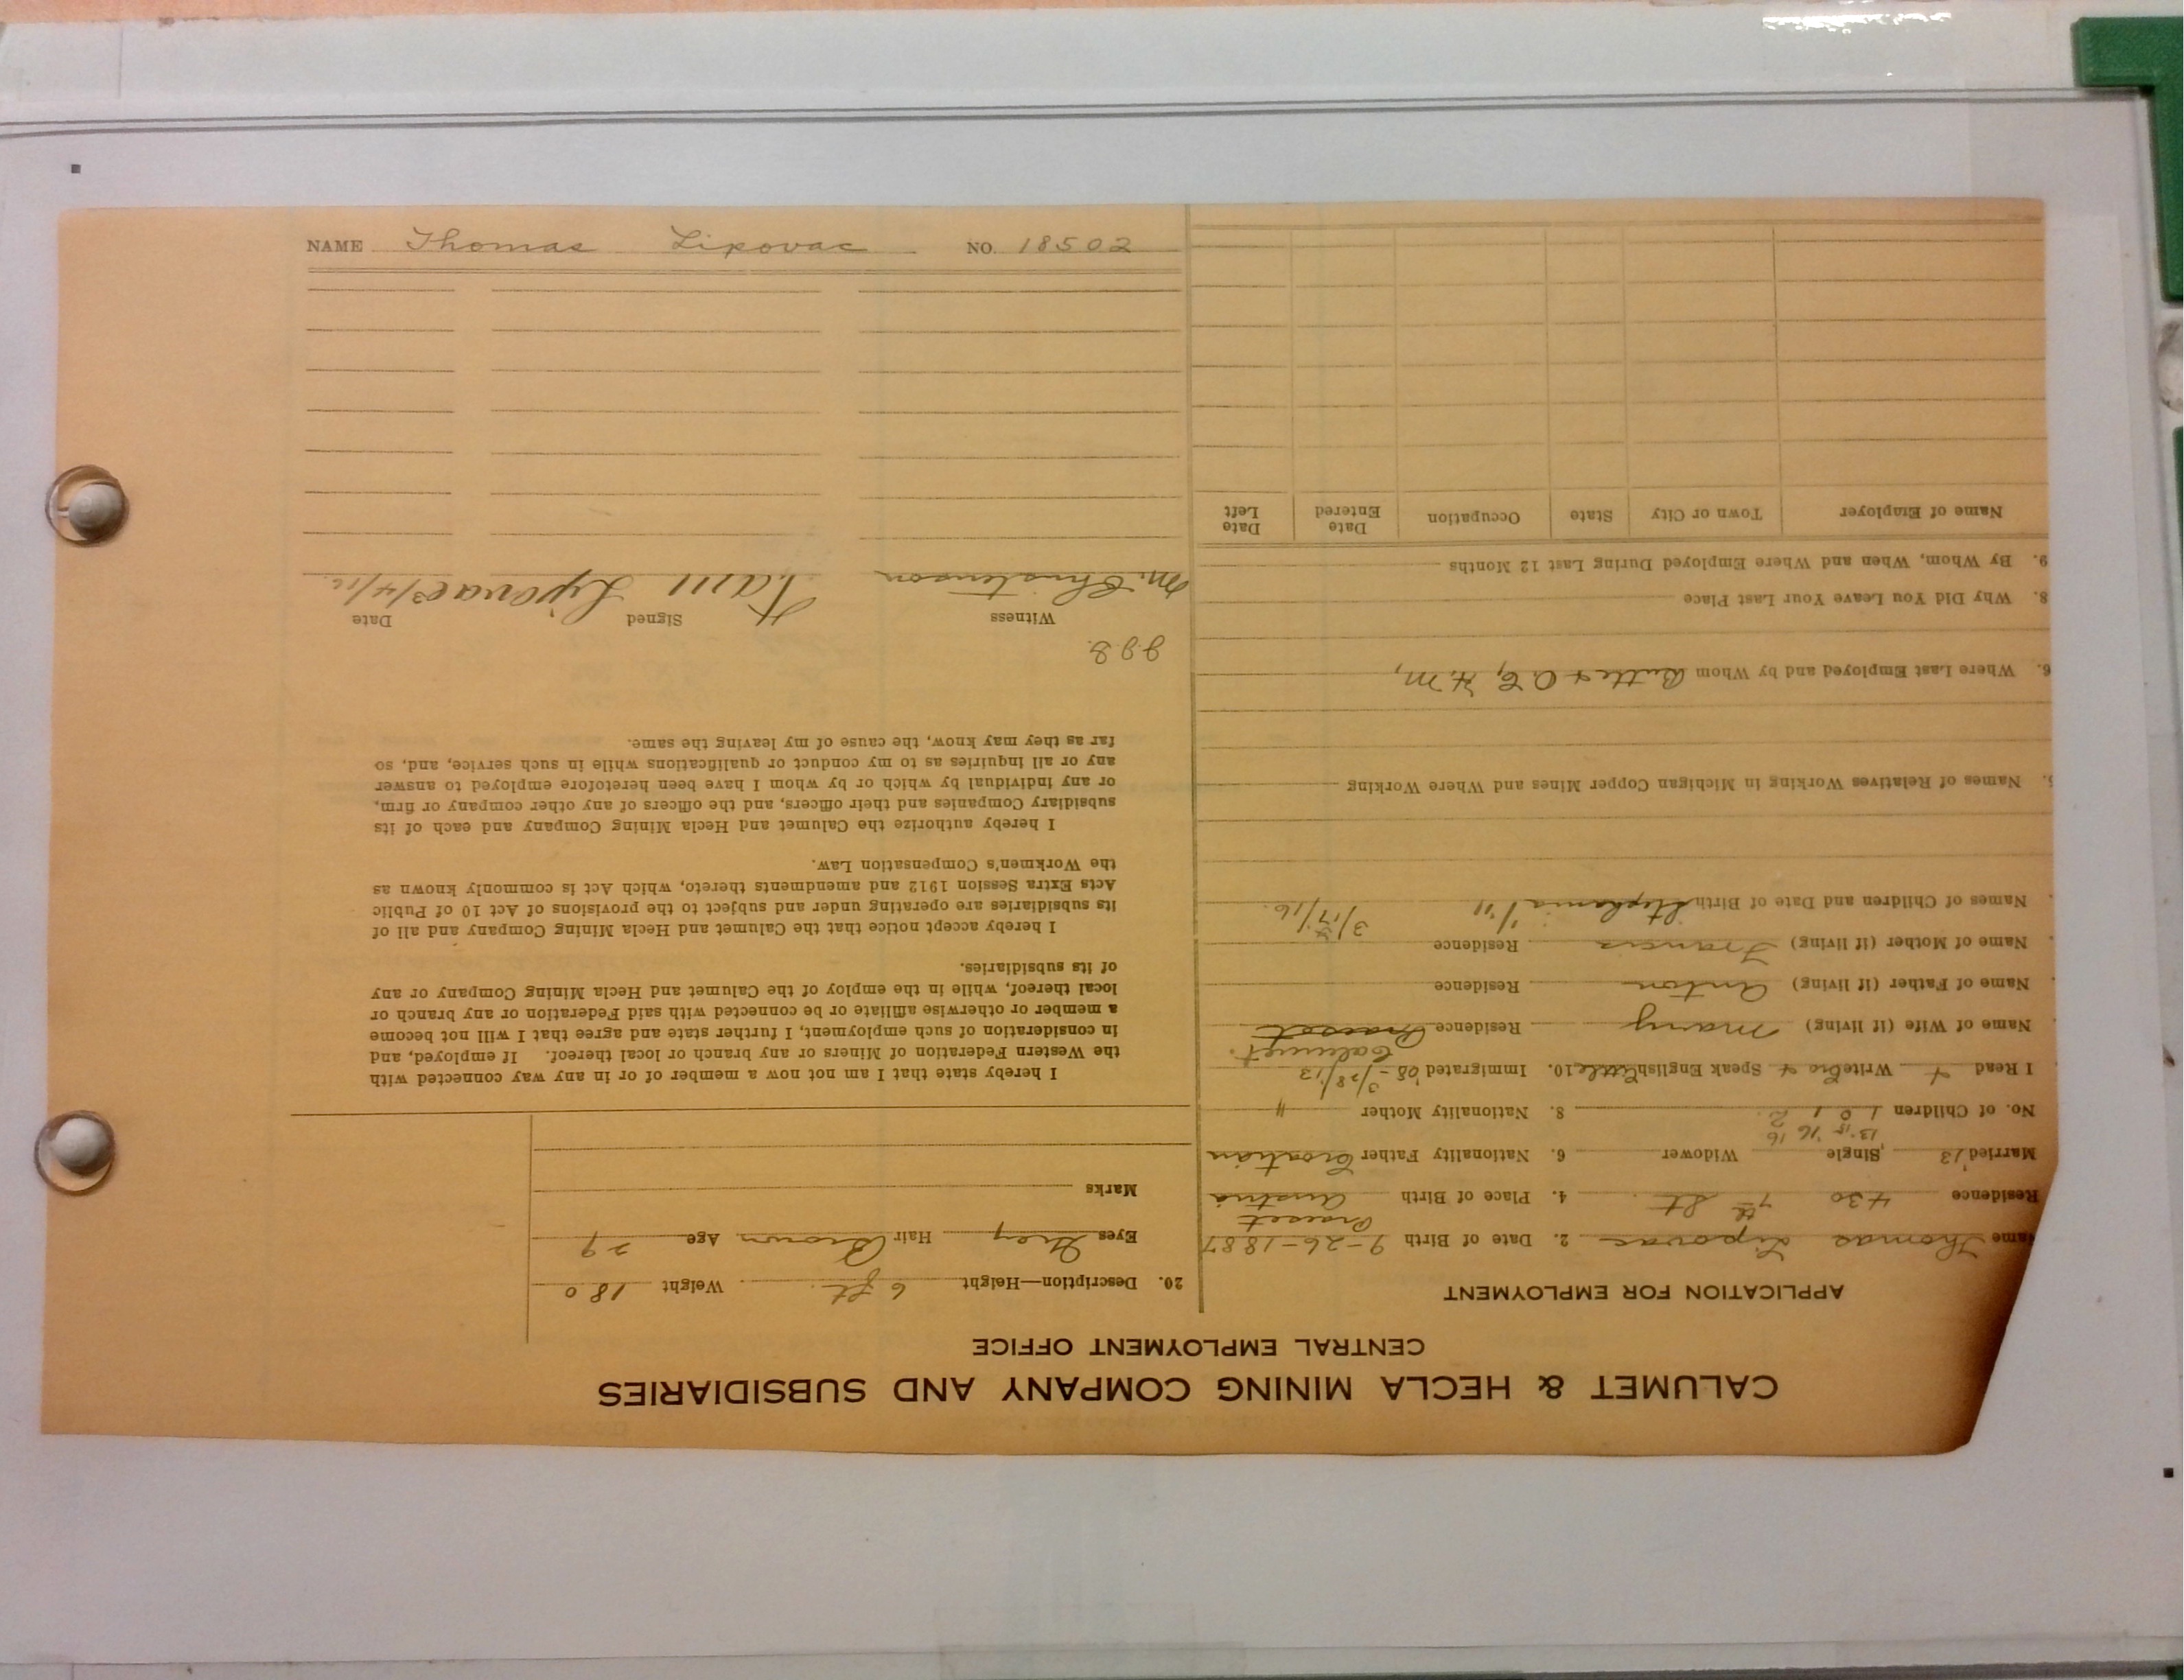 CALUMET & HECLA MINING COMPANY AND SUBSIDIARIES
CENTRAL EMPLOYMENT OFFICE
APPLICATION FOR EMPLOYMENT
ame Thomas Lipovac 2. Date of Birth 9-26-1887
Residence 430 7th St. 4. Place of Birth Austria
Married '13 Single Widower 6. Nationality Father Croatian
13 15 '16 16
No. of Children 1 0 1 2 8. Nationality Mother "
I Read + Write Cro + Speak English little 10. Immigrated '08 - 3/28/13
Calumet.
Name of Wife (if living) Mary Residence
Name of Father (if living) Anton Residence
Name of Mother (if living) Francis Residence
Names of Children and Date of Birth Stephania 1/11 3/17/16.
5. Names of Relatives Working in Michigan Copper Mines and Where Working
6. Where Last Employed and by Whom Butte + O.C, H.M,
8. Why Did You Leave Your Last Place
9. By Whom, When and Where Employed During Last 12 Months
Name of Employer Town or City State Occupation Date Entered Date Left
20. Description—Height 6 ft. Weight 180
Eyes Grey Hair Brown Age 29
Marks
I hereby state that I am not now a member of or in any way connected with
the Western Federation of Miners or any branch or local thereof. If employed, and
in consideration of such employment, I further state and agree that I will not become
a member or otherwise affiliate or be connected with said Federation or any branch or
local thereof, while in the employ of the Calumet and Hecla Mining Company or any
of its subsidiaries.
I hereby accept notice that the Calumet and Hecla Mining Company and all of
its subsidiaries are operating under and subject to the provisions of Act 10 of Public
Acts Extra Session 1912 and amendments thereto, which Act is commonly known as
the Workmen's Compensation Law.
I hereby authorize the Calumet and Hecla Mining Company and each of its
subsidiary Companies and their officers, and the officers of any other company or firm,
or any individual by which or by whom I have been heretofore employed to answer
any or all inquiries as to my conduct or qualifications while in such service, and, so
far as they may know, the cause of my leaving the same.
Witness Signed Date
M. Christenson Lipovac
NAME Thomas Lipovac NO. 18502